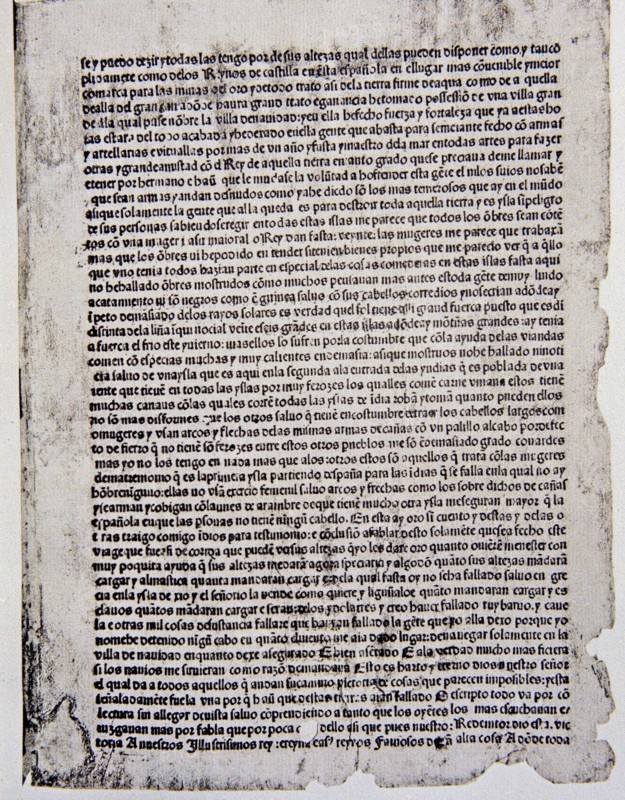 se y puedo dezir y todas las tengo por de sus altezas qual dellas pueden disponer como y tan cõ
plidamẽte como delos Reynos de castilla en esta española en el lugar mas cõuenible y meior
comarca para las minas del oro y de todo trato asi dela tierra firme de aqua como de a quella
de alla del gran can adõde haura grand trato e ganancia he tomado possession de vna villa gran
de ala qual puse nõbre la villa de nauidad: y en ella he fecho fuerza y fortaleza que ya a estas ho
ras estara del todo acabada y he dexado en ella gente que abasta para semeiante fecho cõ armas
y artellarias e vituallas por mas de vn año y fusta y maestro dela mar en todas artes para fazer
otras y grande amistad cõ el Rey de aquella tierra en tanto grado que se preciaua de me llamar y
e tener por hermano e haũ que le mudase la volũtad a hoffender esta gẽte el ni los suios no sabẽ
que sean armas y andan desnudos como ya he dicho sõ los mas temerosos que ay en el mũdo
asi que solamente la gente que alla queda es para destroir toda aquella tierra y es ysla sĩ peligro
de sus personas sabiendo se regir en todas estas islas me parece que todos los õbres sean cõtẽ
tos cõ vna muger i a su maioral o Rey dan fasta veynte: las mugeres me parece que trabaxã
mas que los õbres ni he podido entender si tenien bienes propios que me paredo ver q̃ a q̃llo
que vno tenia todos hazian parte en especial delas cosas comederas en estas islas fasta aqui
no he hallado õbres mostrudos cõmo muchos pensauan mas antes es toda gẽte de muy lindo
acatamiento ni sõ negros como ẽ guinea saluo cõ sus cabellos corredios y no se crian adõde ay
ĩpeto demasiado delos rayos solares es verdad quel sol tiene alli grand fuerca puesto que es di
distinta dela liña iquinocial veite e seis grãdes en estas islas adõde ay mõtñas grandes: ay tenia
a fuerca el frio este yuierno: mas ellos lo sufren por la costumbre que cõ la ayuda delas viandas
comen cõ especias muchas y muy calientes en demasia: asi que mostruos no he hallado ni noti
cia saluo de vna ysla que es aqui en la segunda ala entrada delas yndias q̃ es poblada de vna
iente que tienẽ en todas las yslas por muy ferozes los qualles comẽ carne vmana estos tienẽ
muchas canaus cõ las quales corrẽ todas las yslas de ĩdia robã y tomã quanto pueden ellos
no sõ mas disformes que los otros saluo q̃ tienẽ en costumbre de traer los cabellos largos com
o mugeres y vsan arcos y flechas delas mismas armas de cañas cõ vn palillo al cabo por defec
to de fierro q̃ no tienẽ sõ ferozes entre estos otros pueblos que sõ en demasiado grado couardes
mas yo no los tengo en nada mas que alos otros estos sõ aquellos q̃ trata cõ las mugeres
de matremomo q̃ es la primera ysla partiendo despaña para las ĩdias q̃ se falla en la qual no ay
hõbre nĩguno: ellas no vsã exercio femenil saluo arcos y frechas como los sobre dichos de cañas
y se arman y cobigan cõ launes de arambre de que tienẽ mucho otra ysla me seguran mayor q̃ la
española en que las psonas no tienẽ ningũ cabello. En esta ay oro sĩ cuento y destas y delas o
tras traigo comigo ĩdios para testimonio: e cõclusiõ a fablar desto solamẽte que sea fecho este
viage que fue si de corrida que puedẽ ver sus altezas q̃ yo les dare oro quanto ouierẽ menester con
muy poquita ayuda q̃ sus altezas me darã agora speciaria y algodõ quãto sus altezas mãdarã
cargar y almastica quanta mandaran cargar e dela qual fasta oy no se ha fallado saluo en gre
cia en la ysla de xio y el señorio la uende como quiere y liguñaloe quãto mandaran cargar y es
clauos quãtos mãdaran cargar e seran delos ydolatres y creo hauer fallado ruybaruo y cane
la e otras mil cosas de sustancia fallare que hauran fallado la gẽte que yo alla dexo porque yo
no me he detenido nĩgũ cabo en quãto el viento me aia dado lugar: de nauegar solamente en la
villa de nauidad en quanto dexe asegurado e bien asẽtado E ala verdad mucho mas ficiera
si los nauios me siruieran como razõ demandaua Esto es harto y eterno dios nuestro señor
el qual da a todos aquellos q̃ andan su camino victoria de cosas que parecen imposibles: y esta
señaladamẽte fue la vna por q̃ haũ que destas tierras aian fallado O escripto todo va por cõ
lectura sin allegar de uista saluo cõprendiendo a tanto que los oyẽtes los mas escuchauan e
iuzgauan mas por fabla que por poca c dello asi que pues nuestro Redemtor dio esta vic
toria A nuestros Illustrisimos rey e reyna e a sus reynos Famosos de tã alta cosa Adõde toda